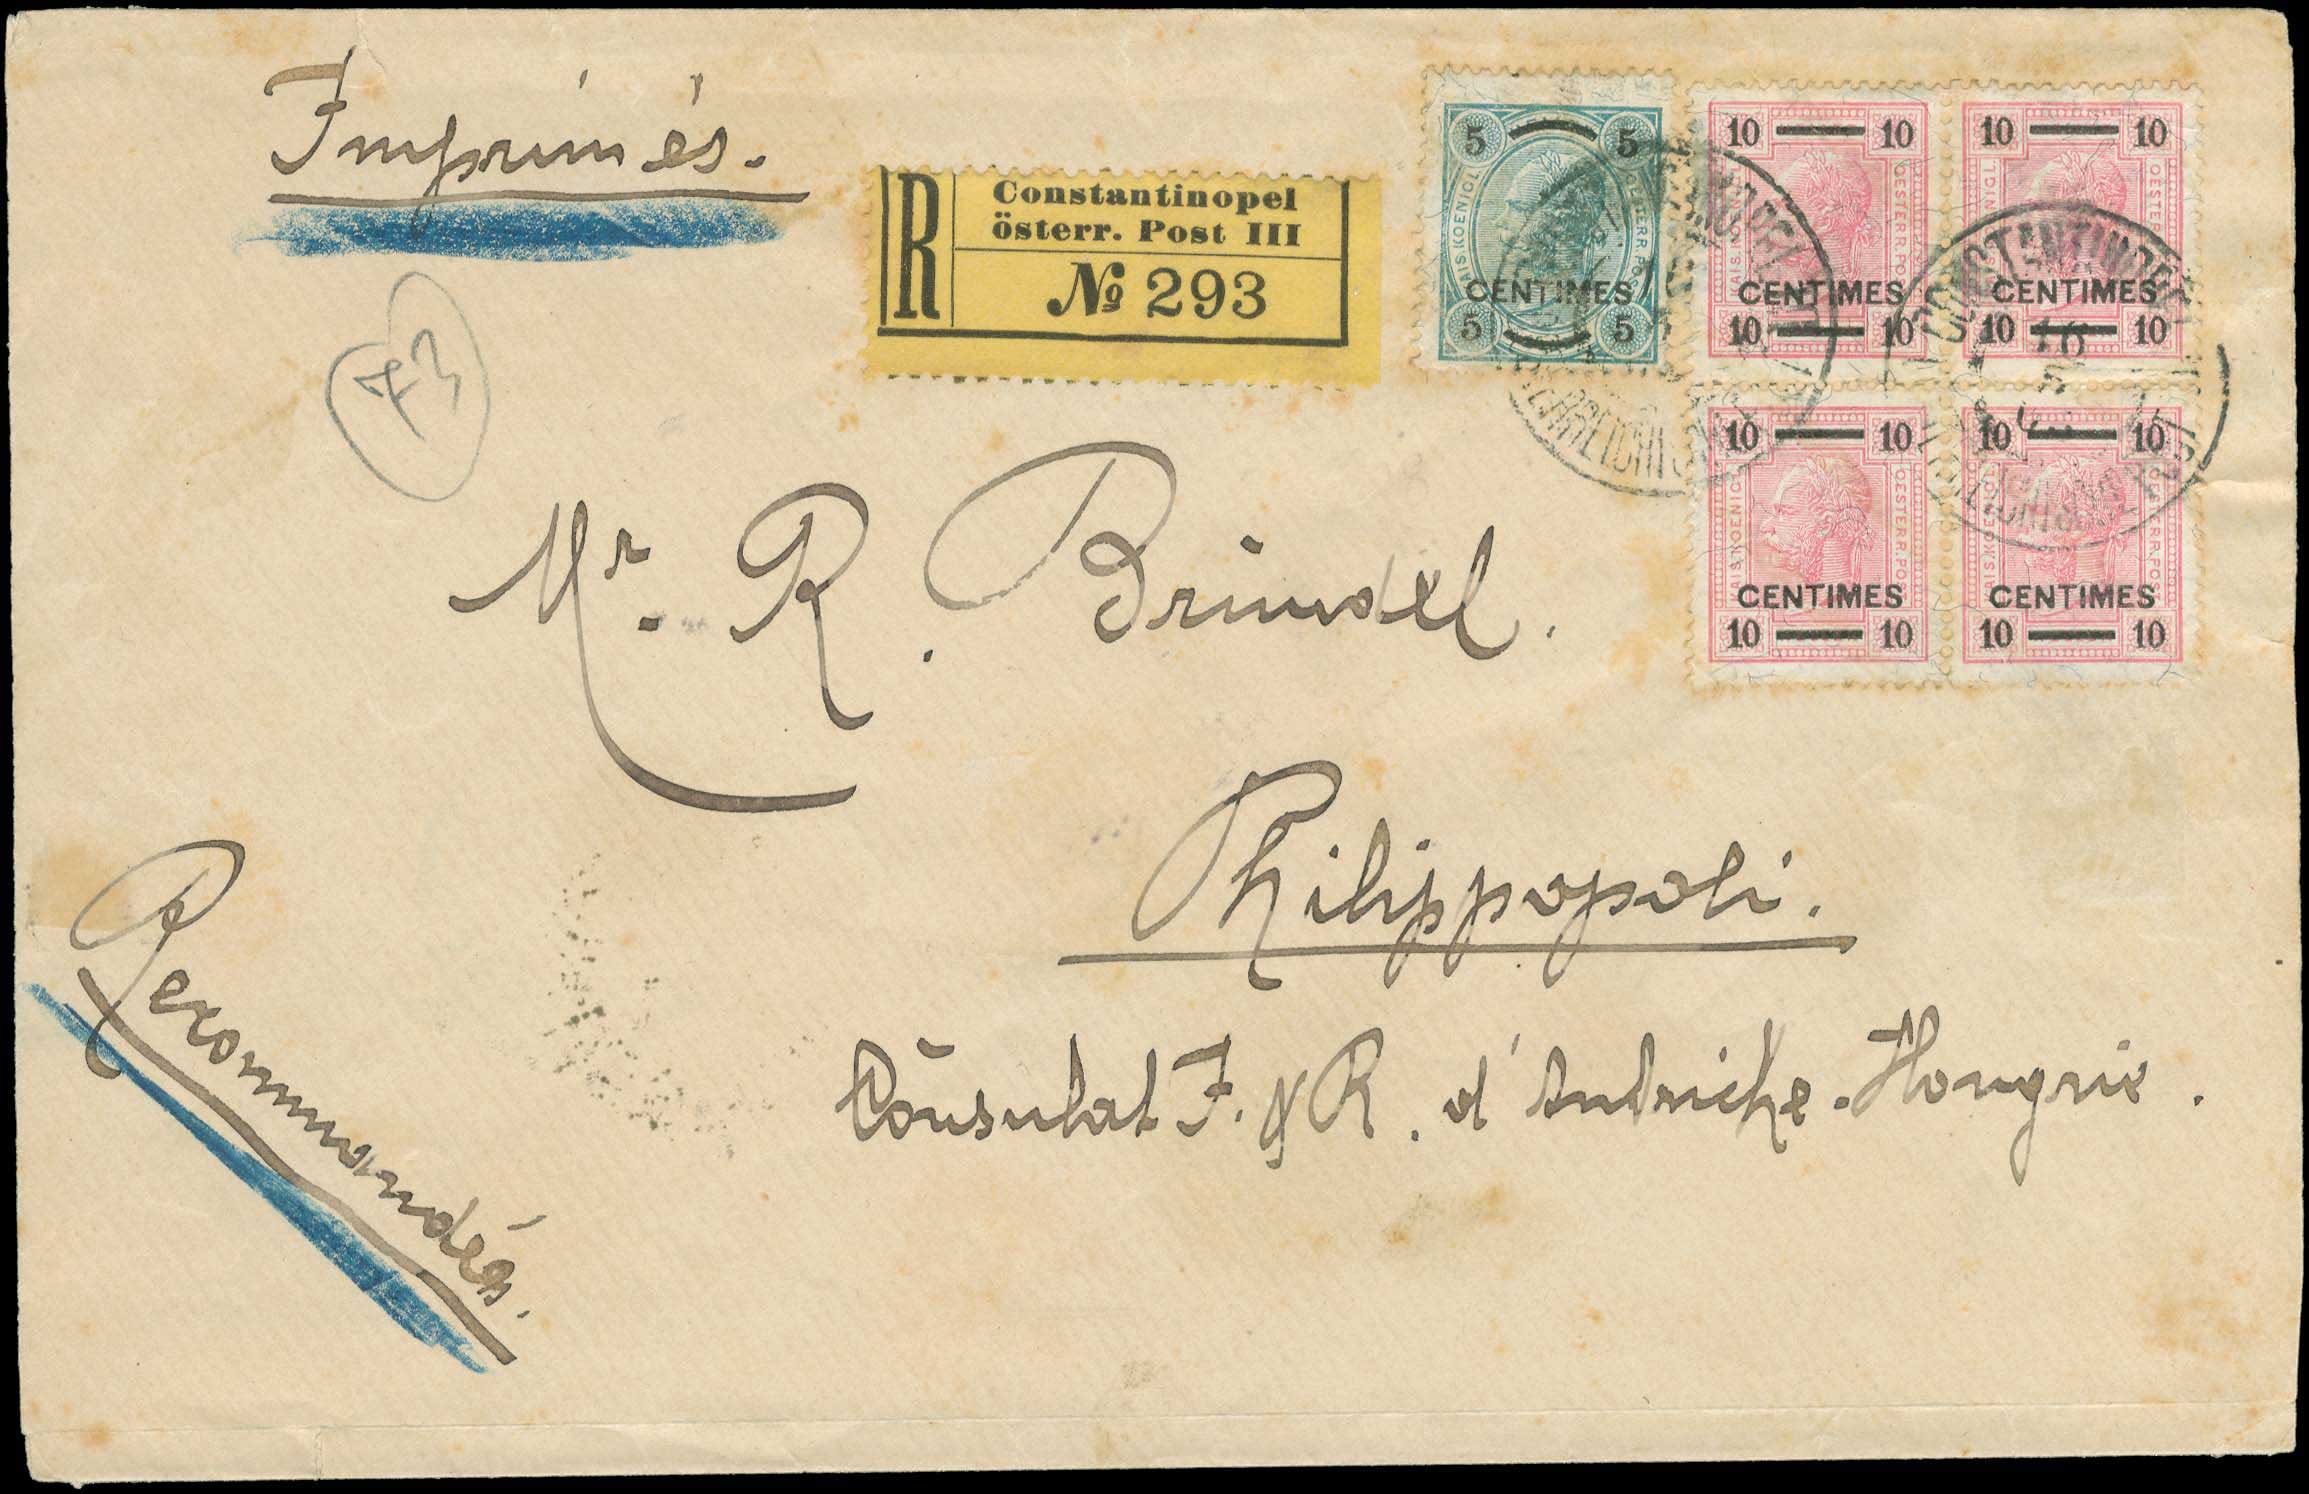 Imprimés.
R
Constantinopel
österr. Post III
№ 293
5 5
CENTIMES
5 5
10 10
CENTIMES
10 10
10 10
CENTIMES
10 10
10 10
CENTIMES
10 10
10 10
CENTIMES
10 10
CONSTANTINOPEL
73
Mr. R. Brindel.
Philippopoli.
Consulat I. & R. d'Autriche-Hongrie.
Recommandés.